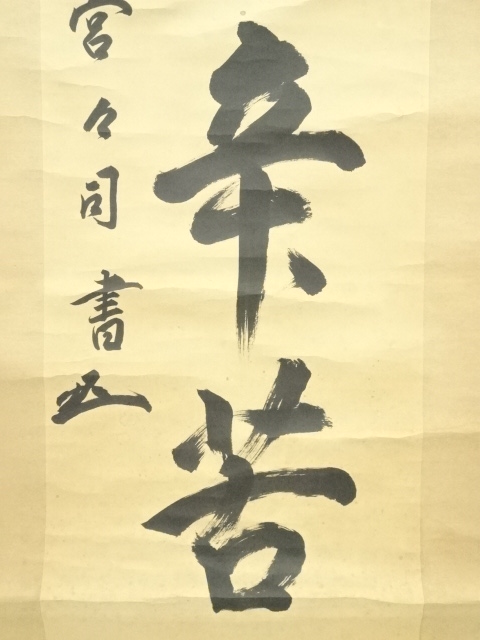 辛苦
宮々司書